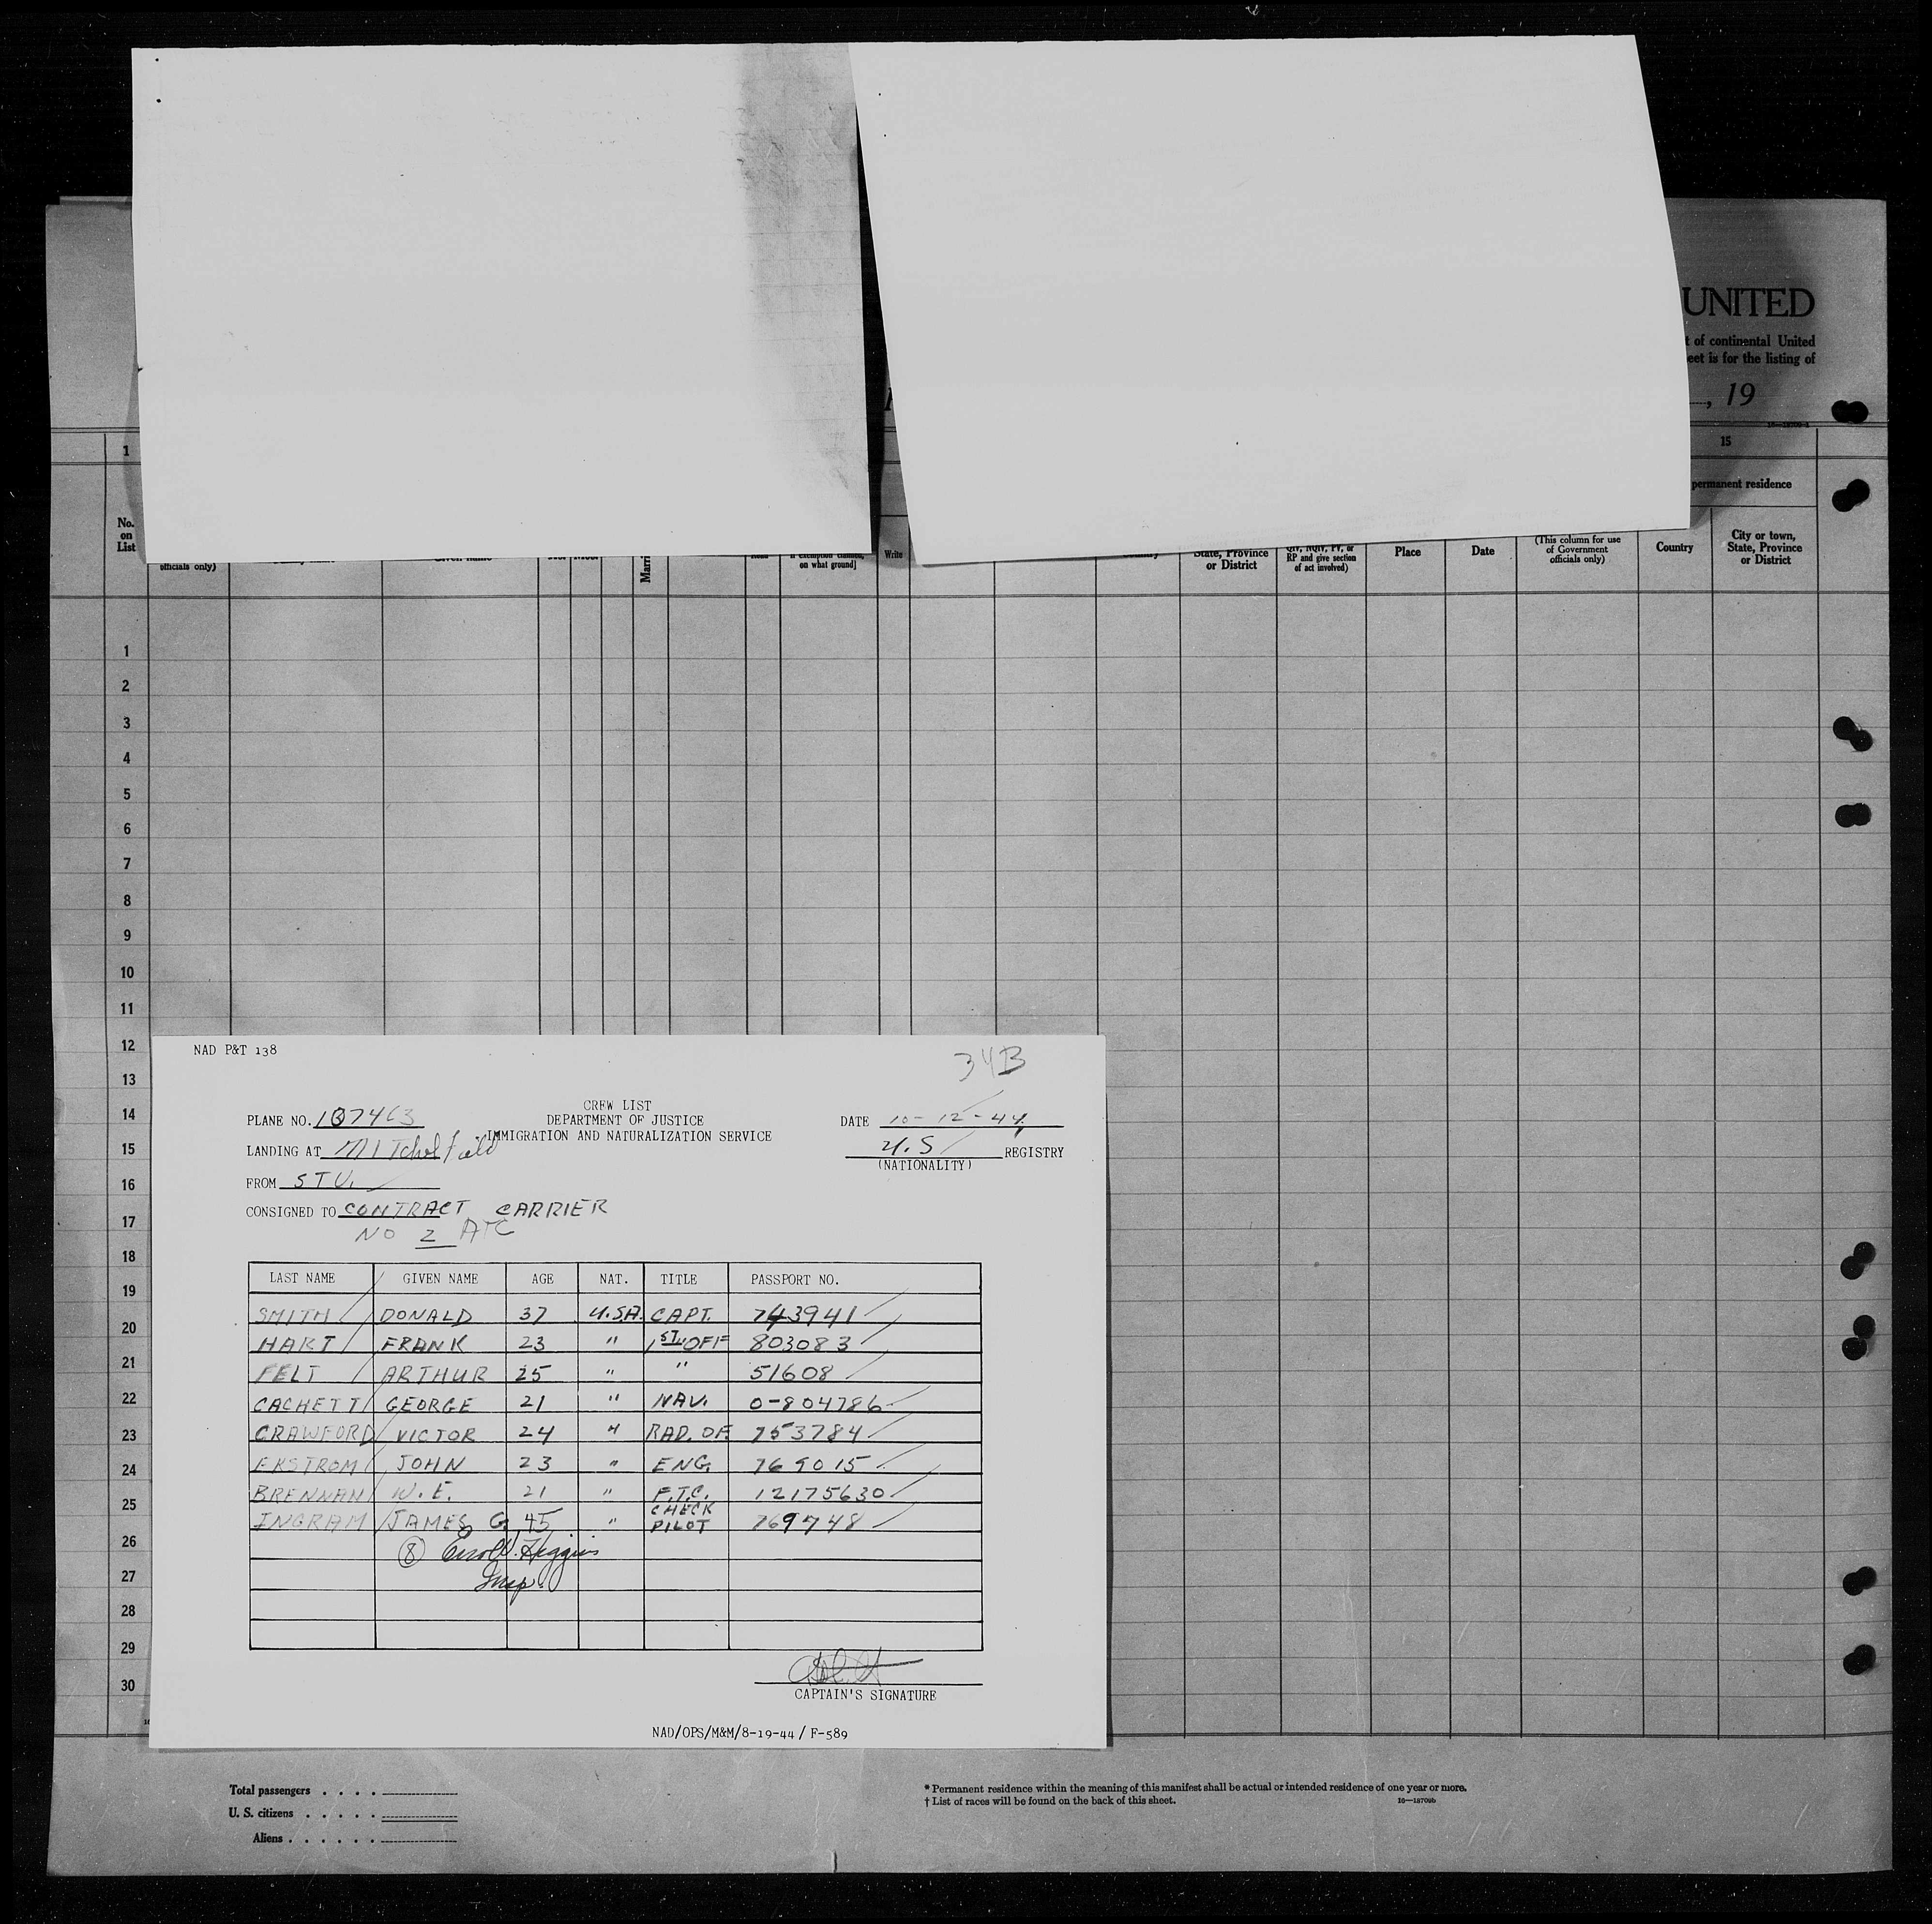 UNITED
t of continental United
eet is for the listing of
, 19
1
15
permanent residence
No.
on
List
officials only)
Read
on what ground]
Write
State, Province
or District
RP and give section
of act involved)
Place
Date
(This column for use
of Government
officials only)
Country
City or town,
State, Province
or District
1
2
3
4
5
6
7
8
9
10
11
12
13
14
15
16
17
18
19
20
21
22
23
24
25
26
27
28
29
30
NAD P&T 138
34B
CREW LIST
DEPARTMENT OF JUSTICE
IMMIGRATION AND NATURALIZATION SERVICE
PLANE NO. 107463
DATE 10-12-44
LANDING AT Mitchel Field
U.S REGISTRY
(NATIONALITY)
FROM S T V.
CONSIGNED TO CONTRACT CARRIER
NO 2 ATC
LAST NAME GIVEN NAME AGE NAT. TITLE PASSPORT NO.
SMITH DONALD 37 U.S.A. CAPT. 743941
HART FRANK 23 " 1ST OFF 803083
FELT ARTHUR 25 " " 51608
CACHETT GEORGE 21 " NAV. 0-804786
CRAWFORD VICTOR 24 " RAD. OF. 753784
EKSTROM JOHN 23 " ENG. 769015
BRENNAN W. E. 21 " F.T.C. 12175630
INGRAM JAMES G 45 " CHECK PILOT 769748
8 Errol Higgins
Insp.
CAPTAIN'S SIGNATURE
NAD/OPS/M&M/8-19-44/ F-589
Total passengers . . . .
U. S. citizens . . . . .
Aliens . . . . . .
* Permanent residence within the meaning of this manifest shall be actual or intended residence of one year or more.
† List of races will be found on the back of this sheet.
16—18709b